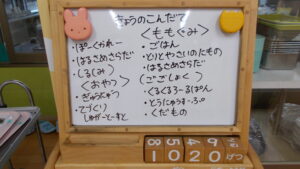 きょうのこんだて
・ぽーくかれー
・はるさめさらだ
・しるしみ
〈おやつ〉
・ぎゅうにゅう
・てづくり
しゅがーとーすと
〈ももぐみ〉
・ごはん
・とりとやさいのたもの
・はるさめさらだ
(ごごしょく)
・くるくるろーるぱん
・とうにゅうすーぷ
・くだもの
8 5 2 0 9
1 0 2 0 げつ